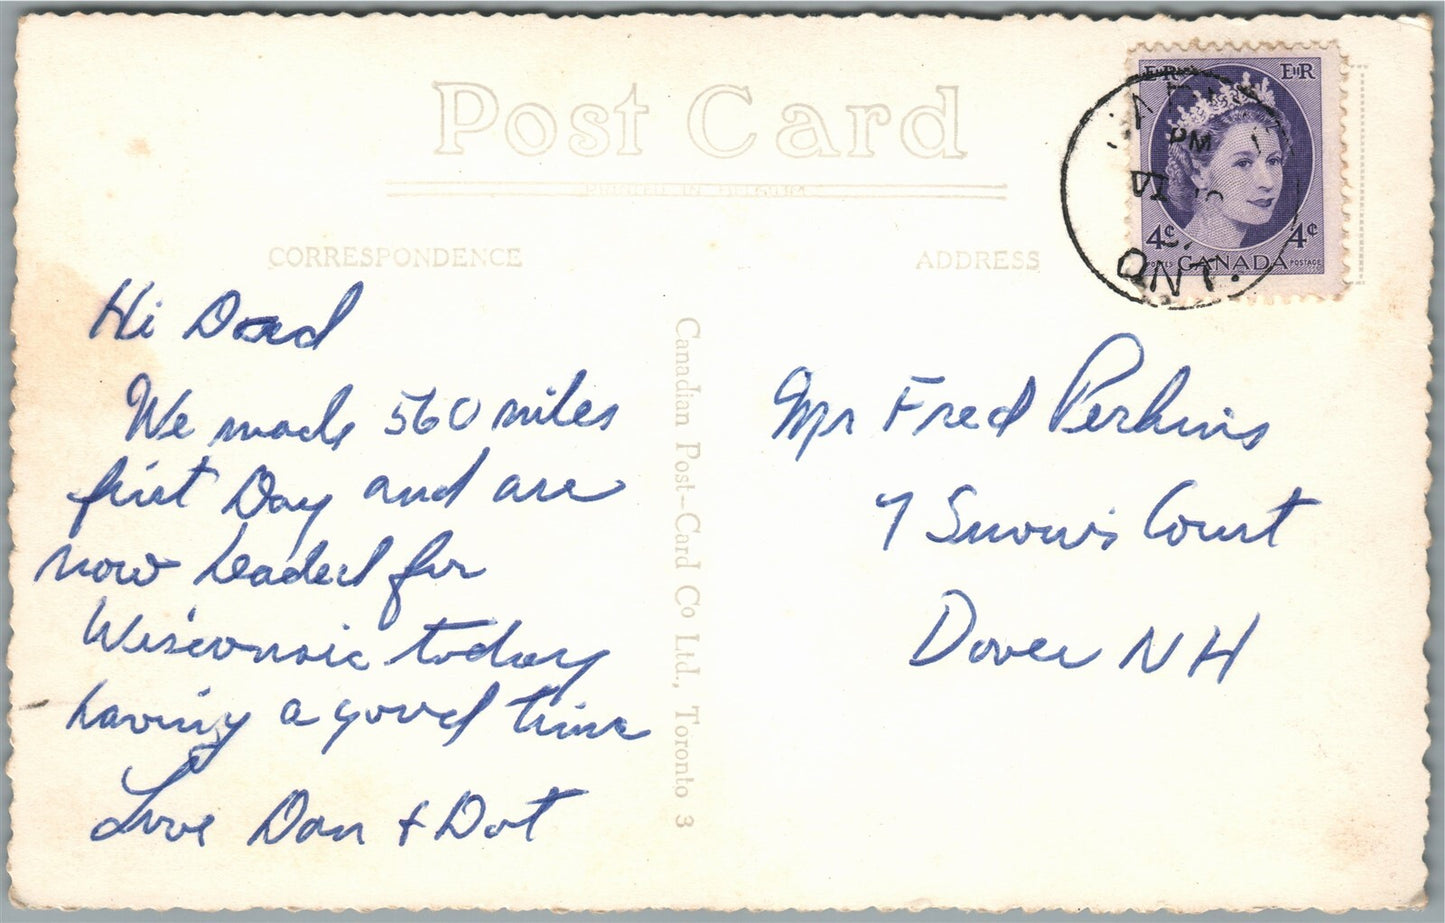 Post Card
PRINTED IN BELGIUM
CORRESPONDENCE
ADDRESS
E II R
E II R
4¢
4¢
POSTES CANADA POSTAGE
PM
VI
ONT.
Hi Dad
We made 560 miles
first Day and are
now headed for
Wisconsin today
having a good time
Love Don + Dot
Canadian Post-Card Co Ltd., Toronto 3
Mr Fred Perkins
7 Snows Court
Dover NH